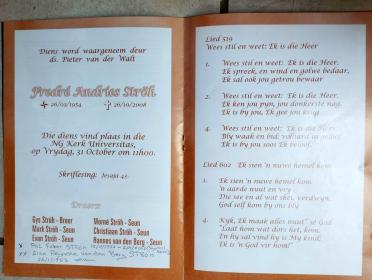 Diens word waargeneem deur
ds. Pieter van der Walt
Fredré Andries Ströh
26/10/2008
Die diens vind plaas in die
NG Kerk Universitas,
op Vrydag, 31 October om 11h00.
Skriflesing: Jesaja 43
Draers
Gys Ströh - Broer
Mark Ströh - Seun
Evan Ströh - Seun
Morné Ströh - Seun
Christiaan Ströh - Seun
Hannes van den Berg - Seun
Lied 519
Wees stil en weet: Ek is die Heer
1. Wees stil en weet: Ek is die Heer.
Ek spreek, en wind en golwe bedaar,
Ek sal ook jou getrou bewaar
2. Wees stil en weet: Ek is die Heer.
Ek ken jou pyn, jou donkerste nag.
Ek is by jou, Ek gee jou krag.
4. Wees stil en weet: Ek is die Heer
Bly waak en bid; volhard in geloof.
Ek is by jou soos Ek beloof.
Lied 602 Ek sien 'n nuwe hemel kom
1. Ek sien 'n nuwe hemel kom,
'n aarde nuut en vry
Die see en al wat skei, verdwyn,
God self kom by ons bly
4. Kyk, Ek maak alles nuut" sê God
"Laat hom wat dors het, kom.
En hy sal vind hy is My kind,
Ek is 'n God vir hom!"